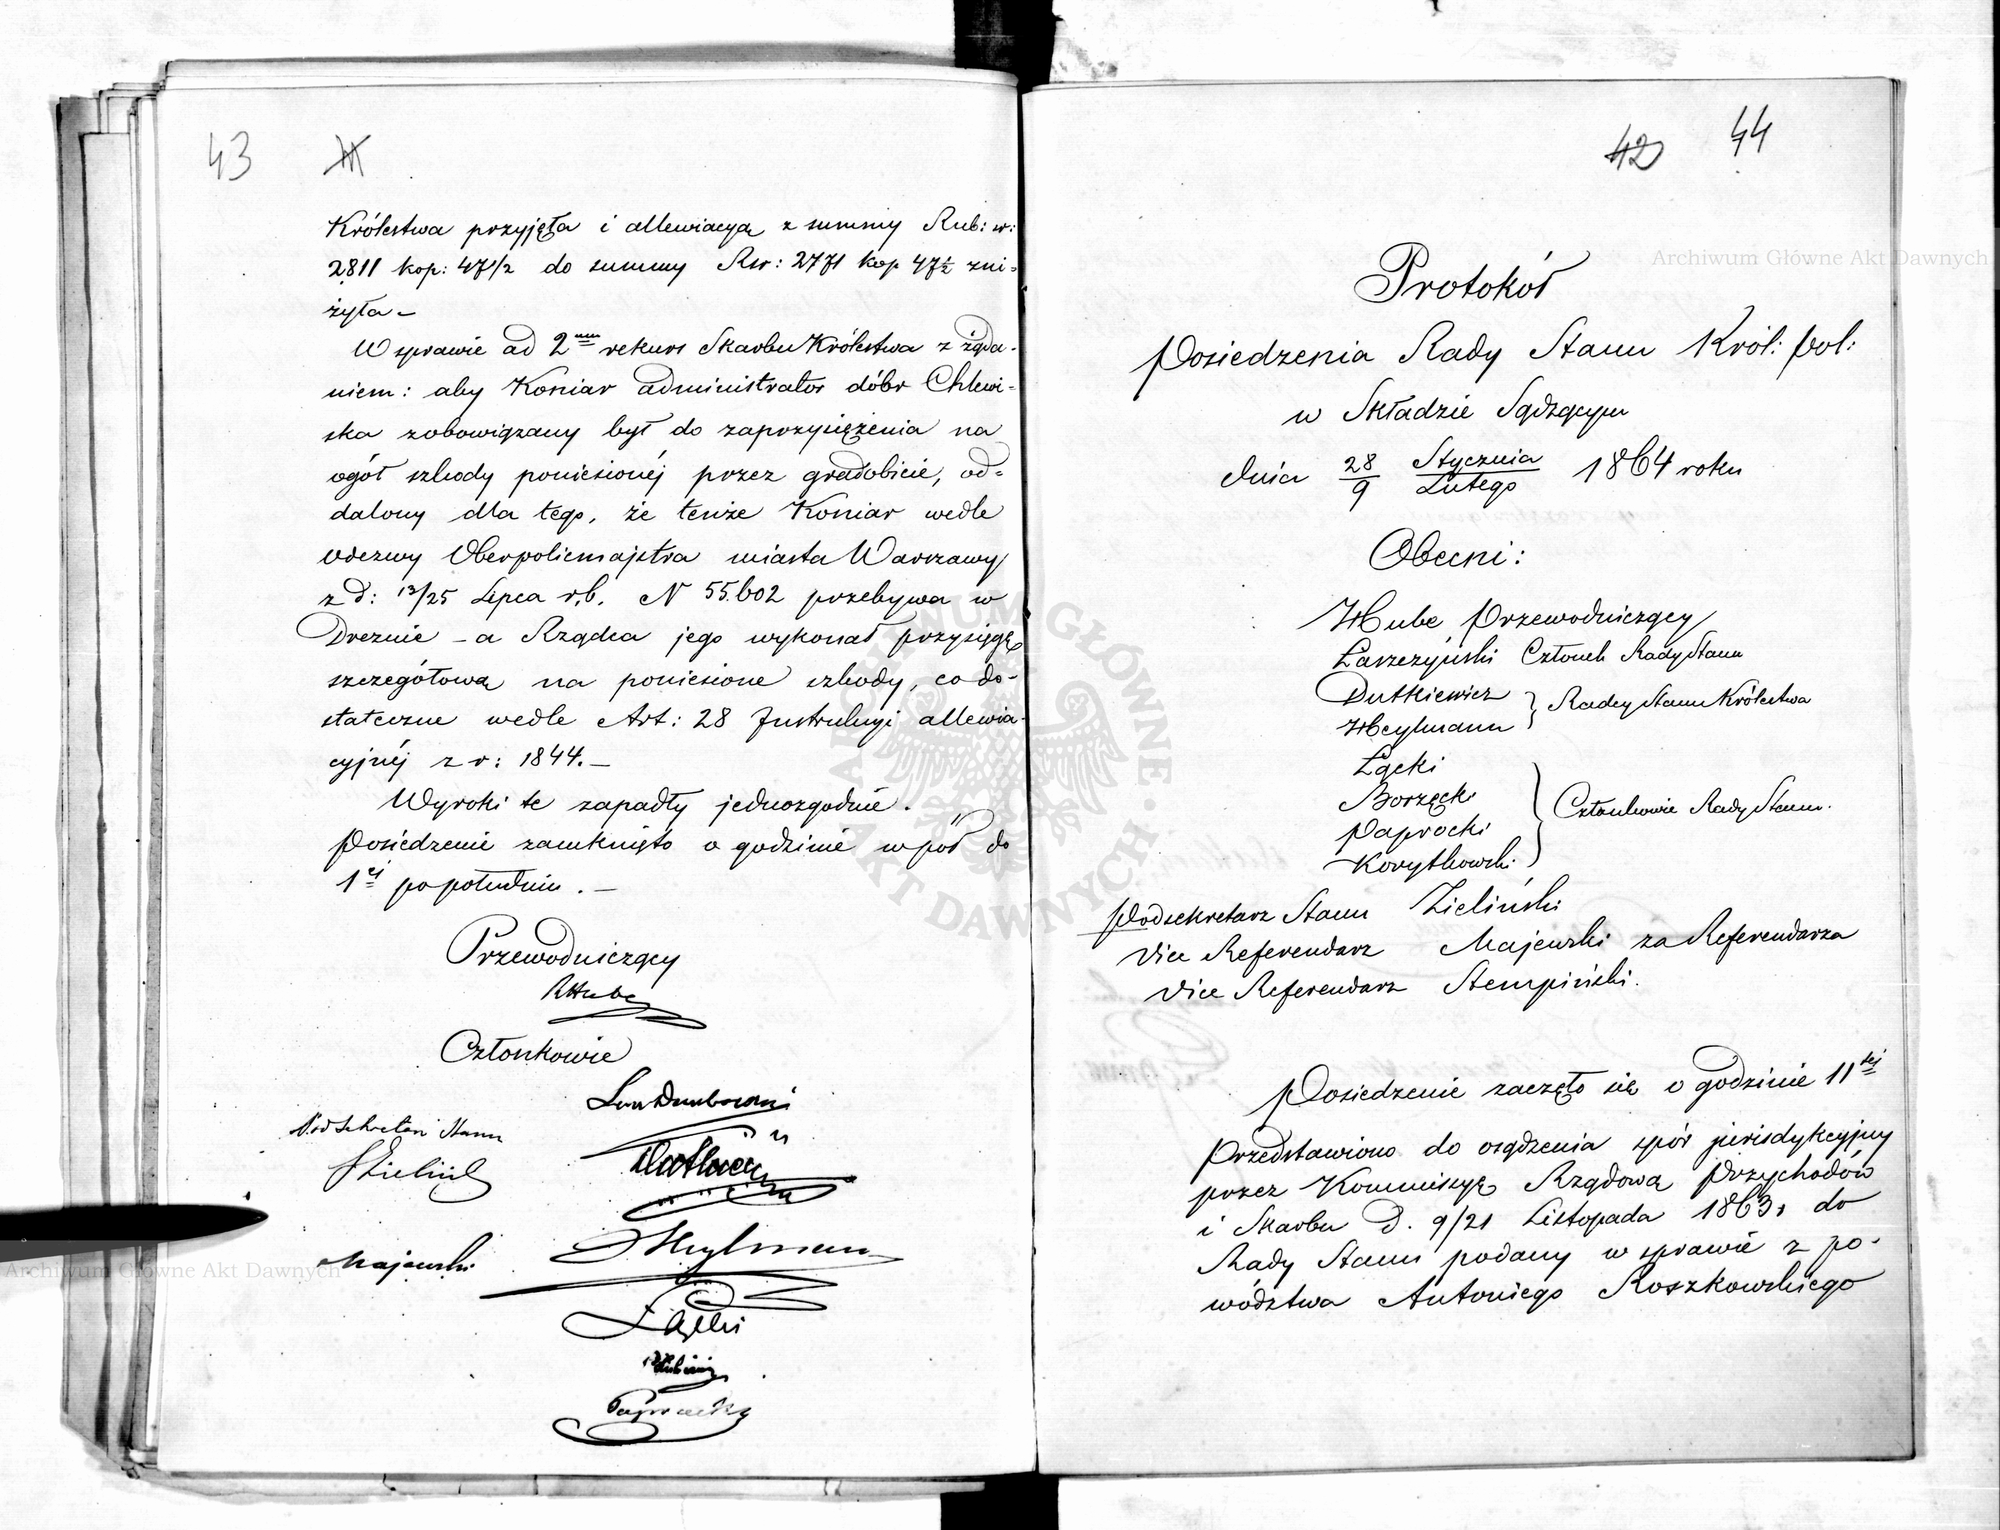 43
Królestwa przyjęła i allewiacyą z summy Rub: sr:
2811 kop: 47 1/2 do summy Rsr: 2771 kop 47 1/2 zni=
żyła –
W sprawie ad 2um rekurs Skarbu Królestwa z żąda-
niem: aby Koniar administrator dóbr Chlewi=
ska zobowiązany był do zaprzysiężenia na
ogół szkody poniesionéj przez gradobicie, od=
dalony dla tego, że tenże Koniar wedle
odezwy Oberpolicmajstra miasta Warszawy
z d: 13/25 Lipca r.b. N 55.602 przebywa w
Dreznie – a Rządca jego wykonał przysięgę
szczegółową na poniesione szkody, co do-
stateczne wedle Art: 28 Instrukcyi allewia-
cyjnéj z r: 1844. –
Wyroki te zapadły jednozgodnie.
Posiedzenie zamknięto o godzinie wpół do
1éj po południu. –
Przewodniczący
RHube
Członkowie
Podsekretarz Stanu
Majewski
Heylman
Łącki
Paprocki
42 44
Protokół
Posiedzenia Rady Stanu Król: Pol:
w Składzie Sądzącym
dnia 28/9 Stycznia/Lutego 1864 roku
Obecni:
Hube Przewodniczący
Łaszczyński Członek Rady Stanu
Dutkiewicz
Heylmann } Radcy Stanu Królestwa
Łącki
Borzęcki
Paprocki } Członkowie Rady Stanu.
Korytkowski
Podsekretarz Stanu Zieliński
Vice Referendarz Majewski za Referendarza
Vice Referendarz Stempiński.
Posiedzenie zaczęto się o godzinie 11téj
Przedstawiono do osądzenia spór jurisdykcyjny
przez Kommissyę Rządową Przychodów
i Skarbu D. 9/21 Listopada 1863 r do
Rady Stanu podany w sprawie z po-
wództwa Antoniego Roszkowskiego
Archiwum Główne Akt Dawnych
Archiwum Główne Akt Dawnych
ARCHIWUM GŁÓWNE AKT DAWNYCH